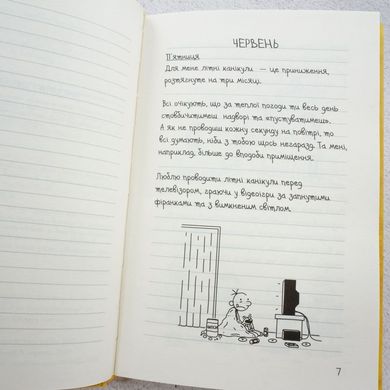 ЧЕРВЕНЬ
П'ятниця
Для мене літні канікули — це приниження,
розтягнуте на три місяці.
Всі очікують, що за теплої погоди ти весь день
стовбичитимеш надворі та «пустуватимеш».
А як не проводиш кожну секунду на повітрі, то
всі думають, ніби з тобою щось негаразд. Та мені,
наприклад, більше до вподоби приміщення.
Люблю проводити літні канікули перед
телевізором, граючи у відеоігри за запнутими
фіранками та з вимкненим світлом.
7